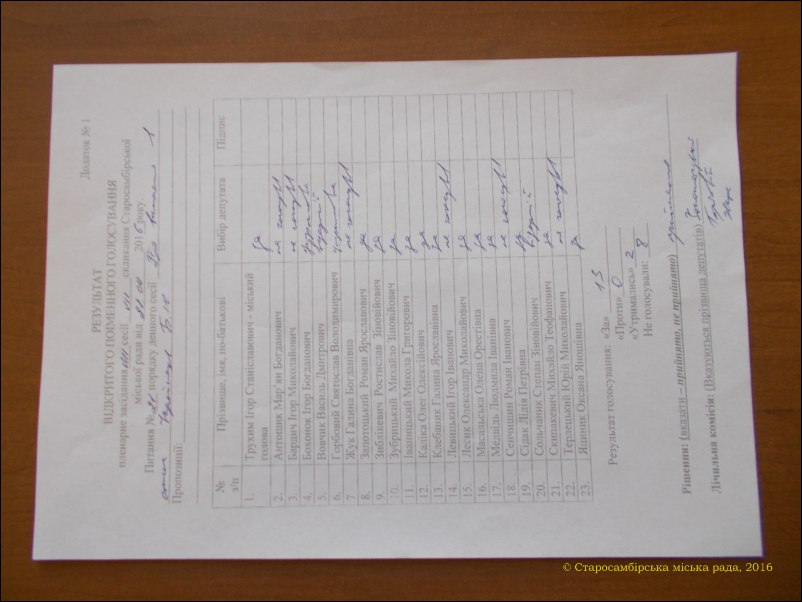 Додаток № 1
РЕЗУЛЬТАТ
ВІДКРИТОГО ПОІМЕННОГО ГОЛОСУВАННЯ
пленарне засідання сесії скликання Старосамбірської
міської ради від 2016 року.
Питання № порядку денного сесії
Пропозиції:
№ з/п Прізвище, імя, по-батькові Вибір депутата Підпис
1. Трухим Ігор Станіславович - міський голова за
2. Антошик Мар'ян Богданович не голосував
3. Ігор Миколайович не голосував
4. Ігор Богданович відсутній
5. Василь Дмитрович відсутній
6. Горбовий Святослав Володимирович
7 Жук Галина Богданівна не голосував
8. Золотоцький Роман Ярославович за
9. Зиблікевич Ростислав Зіновійович за
10. Зубрицький Михайло Зіновійович за
11. Іваницький Микола Григорович за
12. Каліка Олег Олексійович за
13. Клебаник Галина Ярославівна за
14. Левицький Ігор Іванович не голосував
15. Лесик Олександр Миколайович за
16. Масальська Олена Орестівна за
17. Мелюдь Людмила Іванівна за
18. Сенчишин Роман Іванович не голосував
19. Сідак Лідія Петрівна за
20. Сольчаник Степан Зіновійович відсутній
21. Скипакевич Михайло Теофанович за
22. Терлецький Юрій Миколайович не голосував
23. Яциник Оксана Яношівна за
Результат голосування: «За» 13
«Проти» 0
«Утримались» 2
Не голосували: 8
Рішення: (вказати – прийнято, не прийнято)
Лічильна комісія: (Вказуються прізвища депутатів)
© Старосамбірська міська рада, 2016